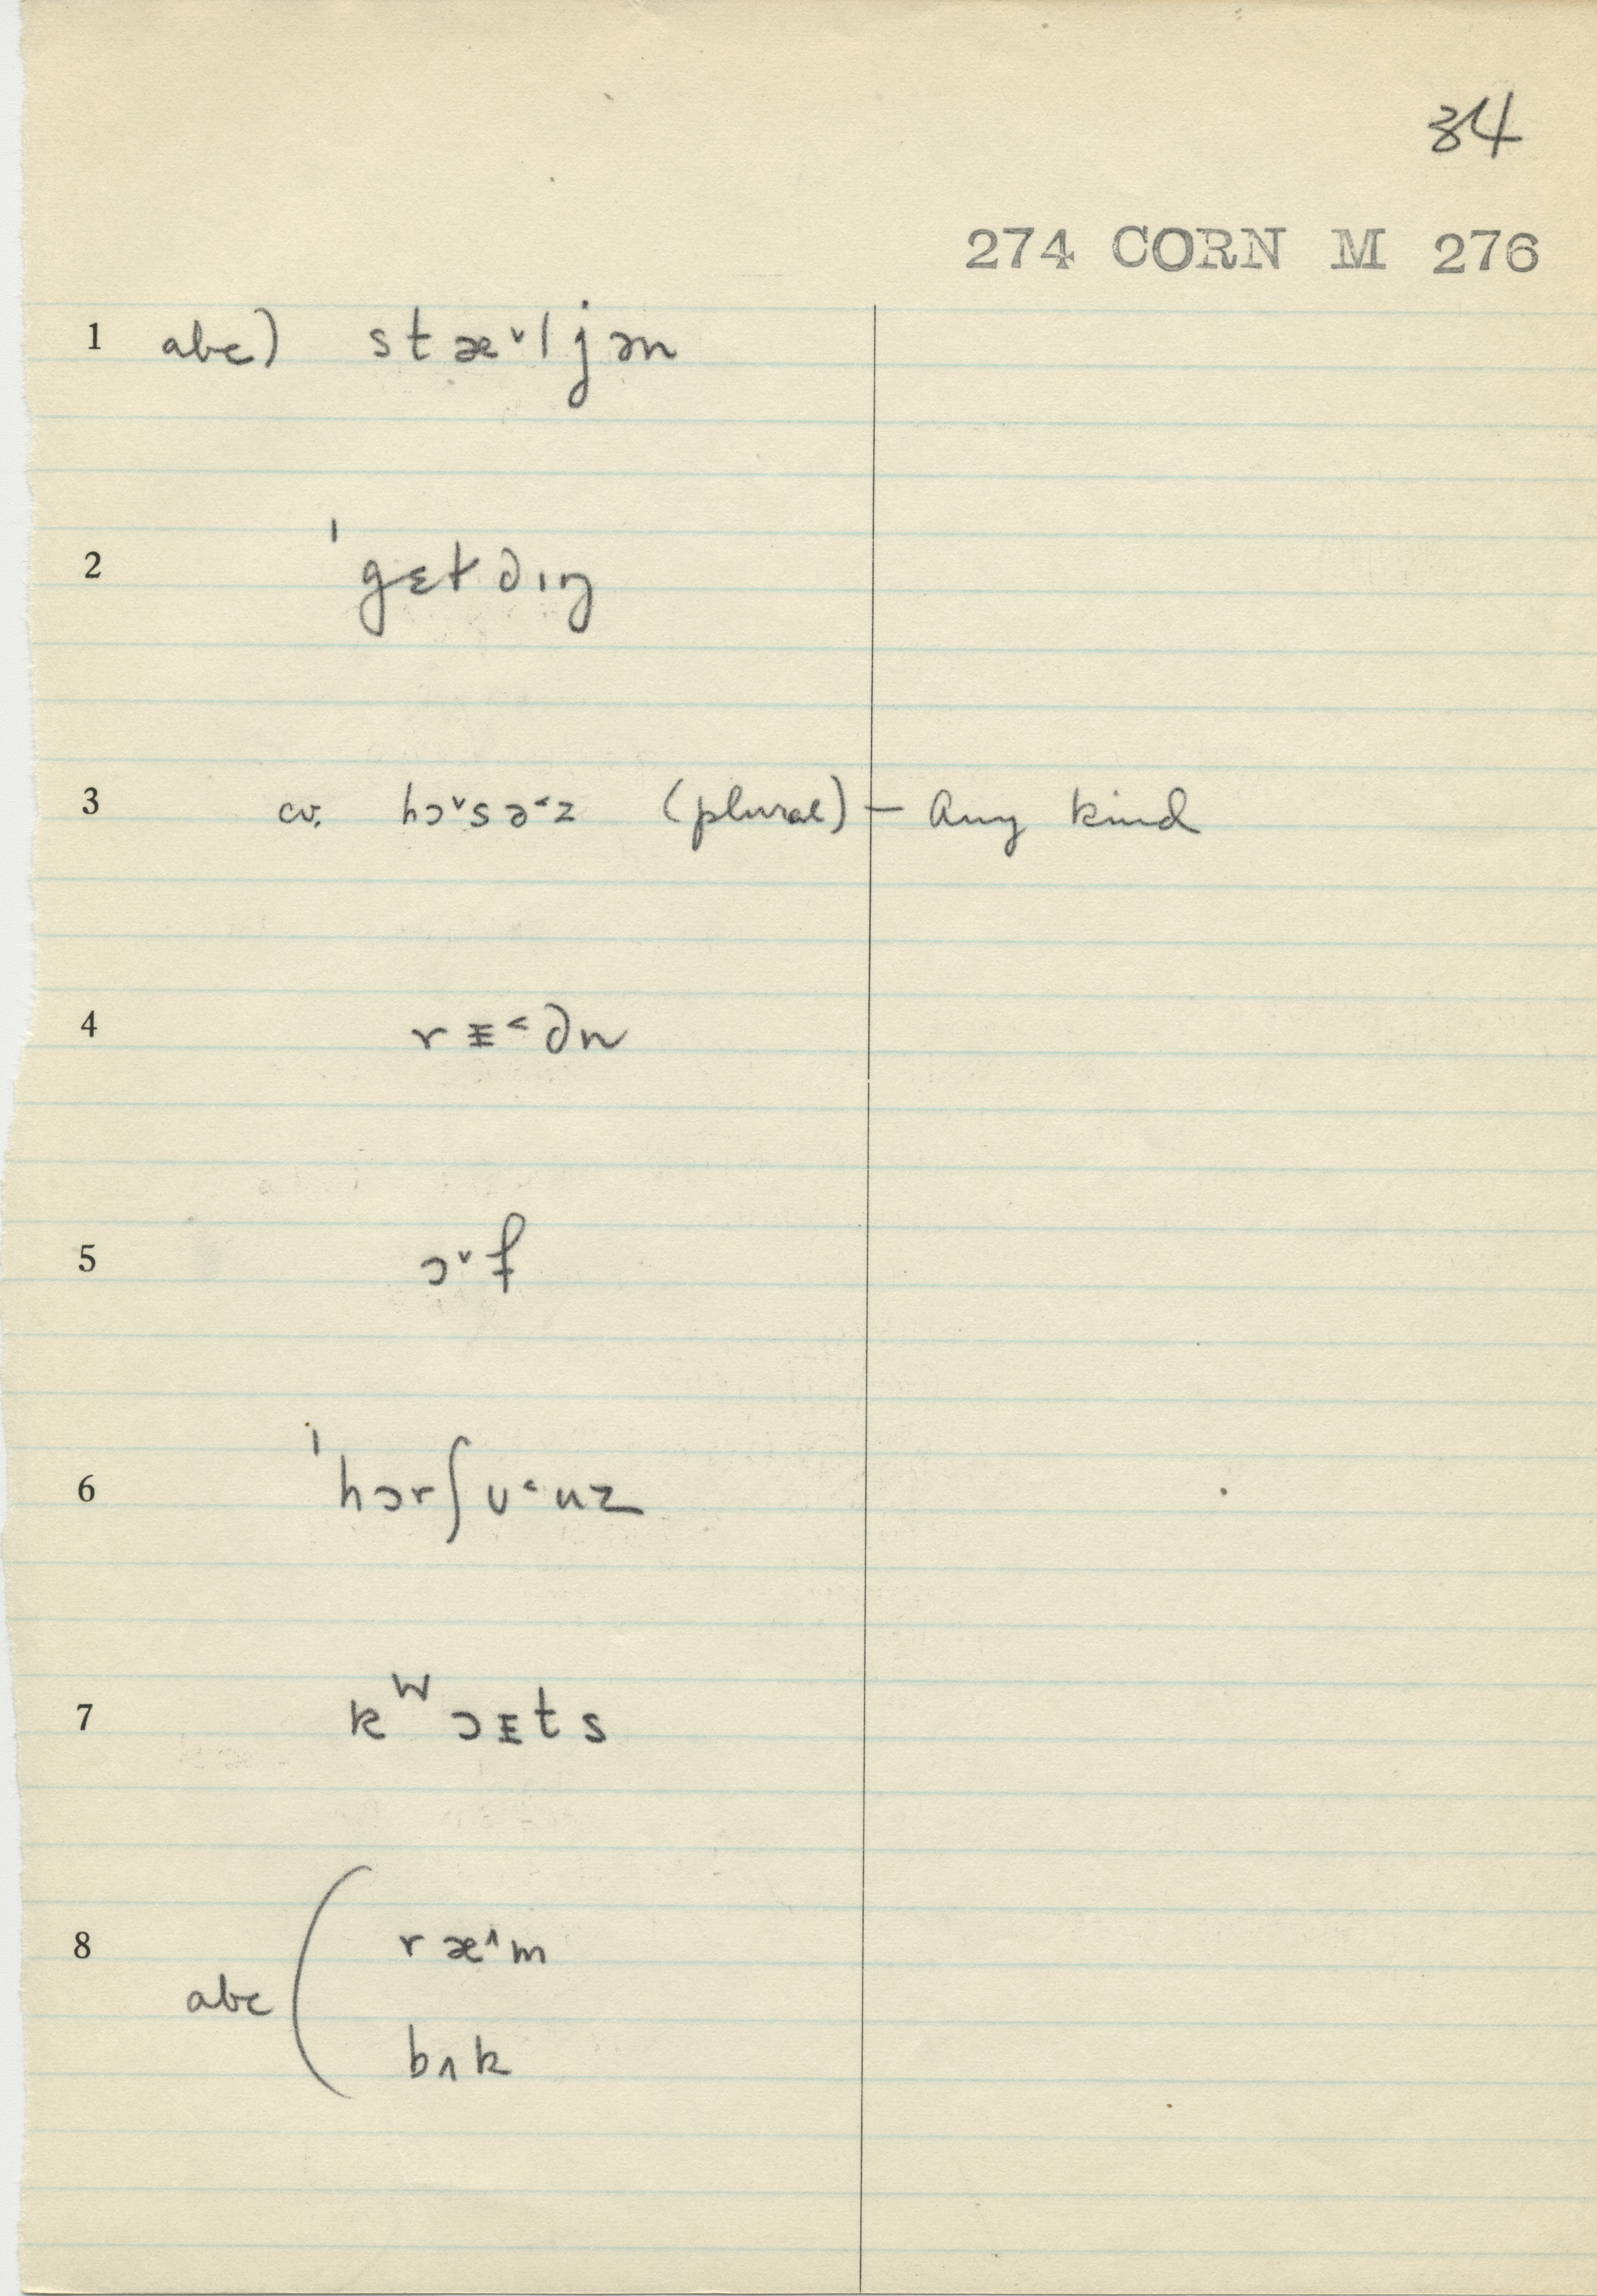 34
274 CORN M 276
1 abc) stæ˅ljən
2 ˈgɛt∂ıŋ
3 cv. hɔ˅sə˂z (plural) — Any kind
4 rᵻ˂∂n
5 ɔ˅f
6 ˈhɔrʃu˂uz
7 kᵂɔᵻts
8 abc ( ræ˄m
bʌk